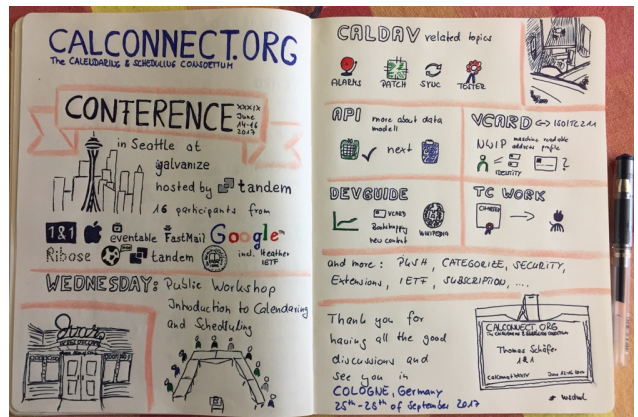 CALCONNECT.ORG
THE CALENDARING & SCHEDULING CONSORTIUM
CONFERENCE XXXIX
June
14-16
2017
in Seattle at
galvanize
hosted by tandem
16 participants from
1&1 eventable FastMail Google
Ribose tandem incl. Heather
IETF
WEDNESDAY: Public Workshop
Introduction to Calendaring
and Scheduling
CALDAV related topics
ALARMS PATCH SYNC TESTER
API more about data
modell
next
VCARD <-> ISO/TC211
NWIP machine readable
address profile
IDENTITY ?
DEVGUIDE
VCARD
Bookhappy
new content
WIKIPEDIA
TC WORK
CHARTER
and more: PUSH, CATEGORIZE, SECURITY,
Extensions, IETF, SUBSCRIPTION, ....
Thank you for
having all the good
discussions and
see you in
COLOGNE, Germany
25th-28th of September 2017
CALCONNECT.ORG
THE CALENDARING & SCHEDULING CONSORTIUM
Thomas Schäfer
1&1
CalConnect XXXIX June 12-16 2017